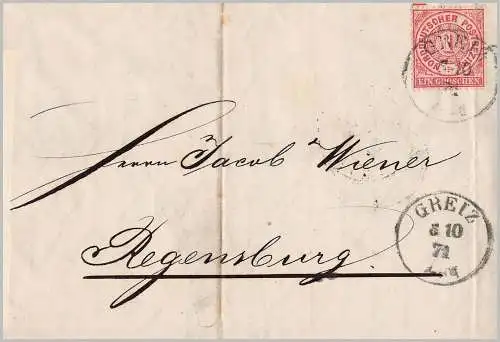 NORDDEUTSCHER POST
EIN GROSCHEN
Herrn Jacob Wiener
Regensburg.
GREIZ
10
71